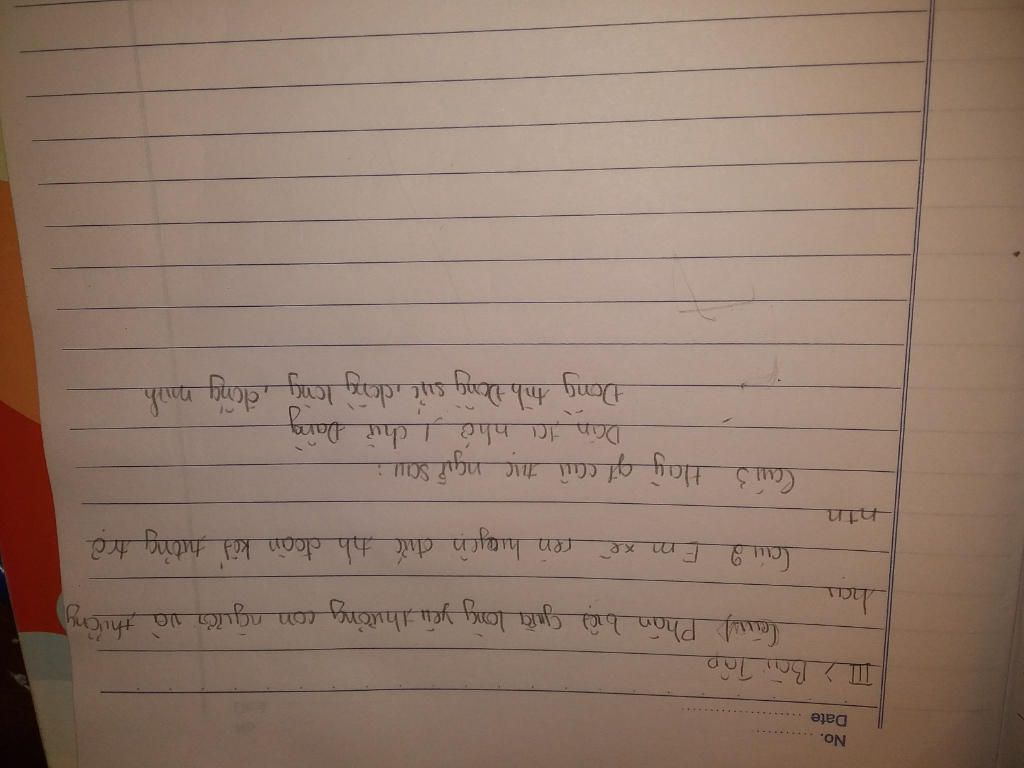 No. ............
Date ............
III > Bài Tập
Câu 1 Phân biệt giữa lòng yêu thương con người và thương
hại
Câu 2 Em xẽ rèn luyện đức tih đoàn kết tương trợ
ntn
Câu 3 Hãy gt câu tục ngữ sau:
Dân ta nhớ 1 chữ Đồng
Đồng tih đồng sức, đồng lòng, đồng minh